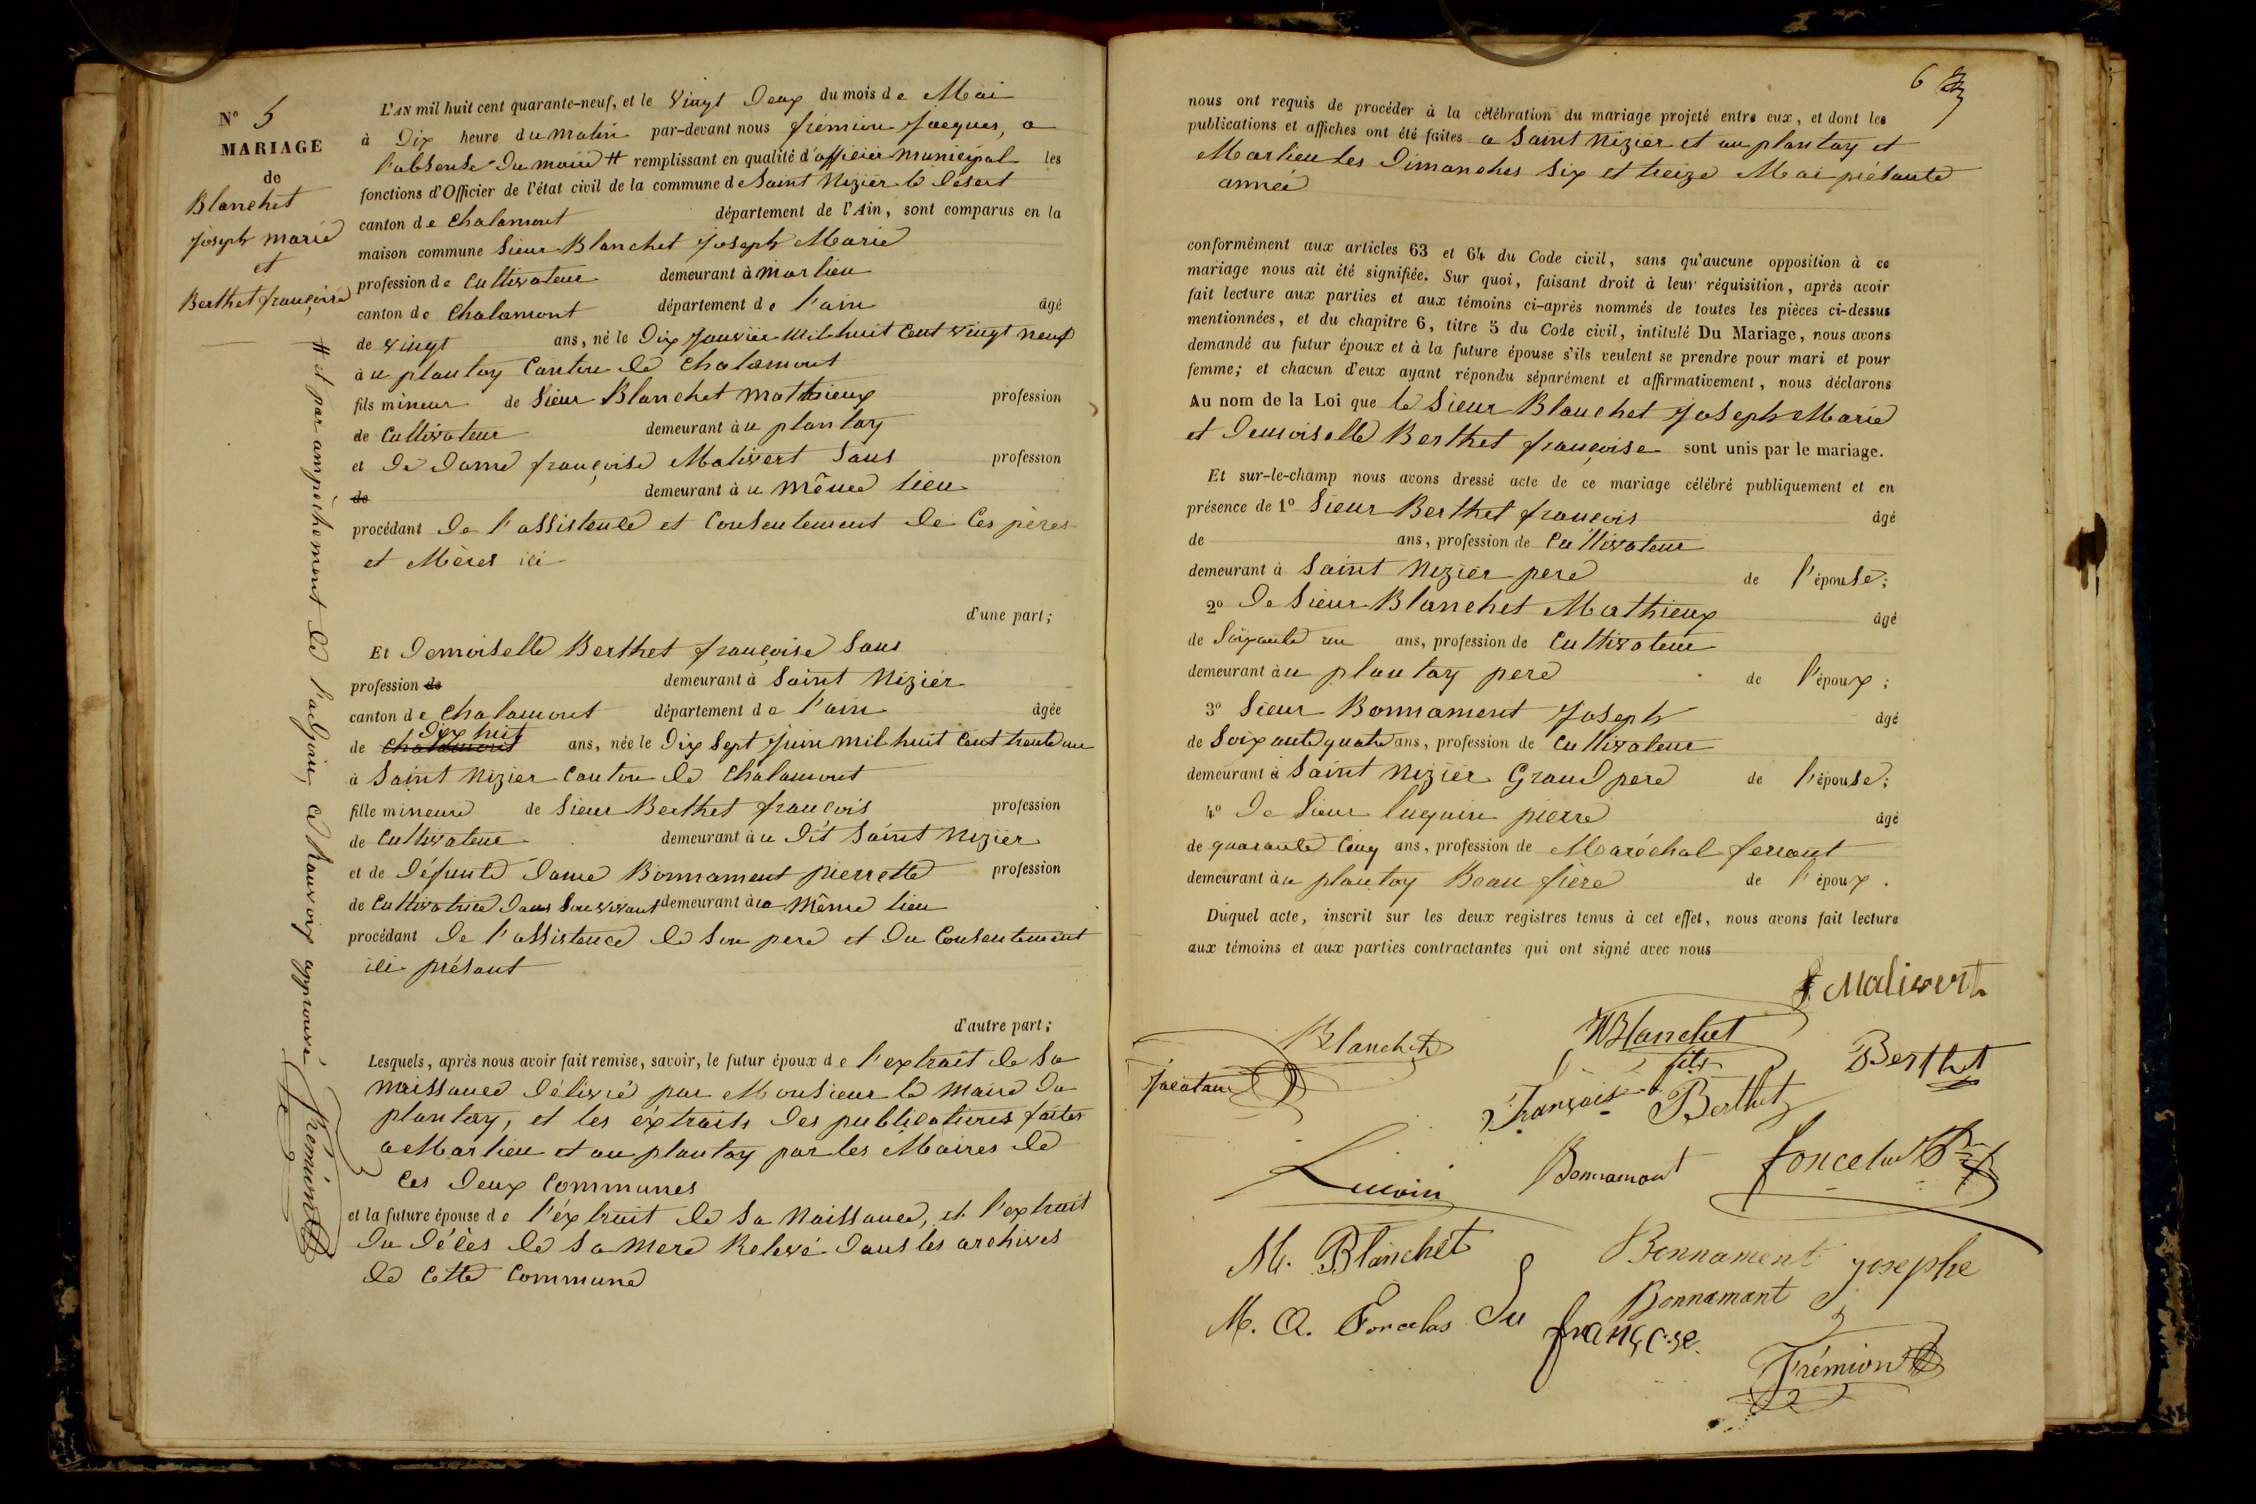 N° 5
MARIAGE
de
Blanchet
joseph marie
et
Berthet françoise
# et par ampêchement de l'adjoint, ce Ranvoix approuvé
Fremion
L'AN mil huit cent quarante-neuf, et le vingt Deux du mois de Mai
à Dix heure du matin par-devant nous frémion Jacques, a
l'absense du maire # remplissant en qualité d'officier municipal les
fonctions d'Officier de l'état civil de la commune de Saint Nizier le Désert
canton de Chalamont département de l'Ain, sont comparus en la
maison commune Sieur Blanchet Joseph Marie
profession de Cultivateur demeurant à Marlieu
canton de Chalamont département de l'ain âgé
de vingt ans, né le Dix Janvier Mil huit Cent vingt neuf
à u plantay Canton de Chalamont
fils mineur de Sieur Blanchet Mathieux profession
de Cultivateur demeurant à u plantay
et De Dame françoise Malivert Sans profession
de demeurant à u même lieu
procédant De l'assistence et Consentement de Ces pères
et Mères ici
d'une part;
Et Demoiselle Berthet françoise Sans
profession de demeurant à Saint Nizier
canton de Chalamont département de l'ain âgée
Dix huit
de Chalamont ans, née le Dix Sept Juin mil huit Cent trente un
à Saint Nizier Canton de Chalamont
fille mineure de Sieur Berthet françois profession
de Cultivateur demeurant à u Dit Saint Nizier
et de Défunte Dame Bonnament pierrette profession
de Cultivatrice Dans Son vivant demeurant à u Même lieu
procédant De l'assistence de Son pere et Du Consentement
ici présant
d'autre part;
Lesquels, après nous avoir fait remise, savoir, le futur époux de l'extrait de Sa
naissance Délivré par Monsieur le Maire Du
plantay, et les éxtraits Des publications faites
a Marlieu et au plantay par les Maires de
Ces Deux Communes
et la future épouse de l'éxtrait de Sa Naissance, et l'extrait
Du Décès de Sa Mere Relevé Dans les archives
de Cette Commune
6
nous ont requis de procéder à la célébration du mariage projeté entre eux, et dont les
publications et affiches ont été faites a Saint Nizier et au plantay et
Marlieu les Dimanches Six et treize Mai présante
année
conformément aux articles 63 et 64 du Code civil, sans qu'aucune opposition à ce
mariage nous ait été signifiée. Sur quoi, faisant droit à leur réquisition, après avoir
fait lecture aux parties et aux témoins ci-après nommés de toutes les pièces ci-dessus
mentionnées, et du chapitre 6, titre 5 du Code civil, intitulé Du Mariage, nous avons
demandé au futur époux et à la future épouse s'ils veulent se prendre pour mari et pour
femme; et chacun d'eux ayant répondu séparément et affirmativement, nous déclarons
Au nom de la Loi que le Sieur Blanchet Joseph Marie
et Demoiselle Berthet françoise sont unis par le mariage.
Et sur-le-champ nous avons dressé acte de ce mariage célébré publiquement et en
présence de 1° Sieur Berthet françois âgé
de ans, profession de Cultivateur
demeurant à Saint Nizier pere de l'épouse;
2° De Sieur Blanchet Mathieux âgé
de Soixante un ans, profession de Cultivateur
demeurant à u plantay pere de l'époux;
3° Sieur Bonnament Joseph âgé
de Soixante quatre ans, profession de Cultivateur
demeurant à Saint Nizier Grand pere de l'épouse;
4° De Sieur luquin pierre âgé
de quarante Cinq ans, profession de Maréchal ferrant
demeurant à u plantay Beau frère de l'époux.
Duquel acte, inscrit sur les deux registres tenus à cet effet, nous avons fait lecture
aux témoins et aux parties contractantes qui ont signé avec nous
Malivert
Blanchet
Blanchet
fils
Berthet
François Berthet
Bonnamant
M. Blanchet
Bonnament josephe
M. A. Forcelas
Bonnamant
françoise
Frémion